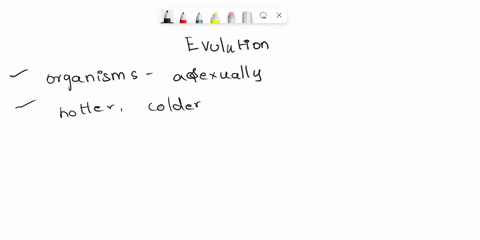 Evolution
organisms - asexually
hotter, colder